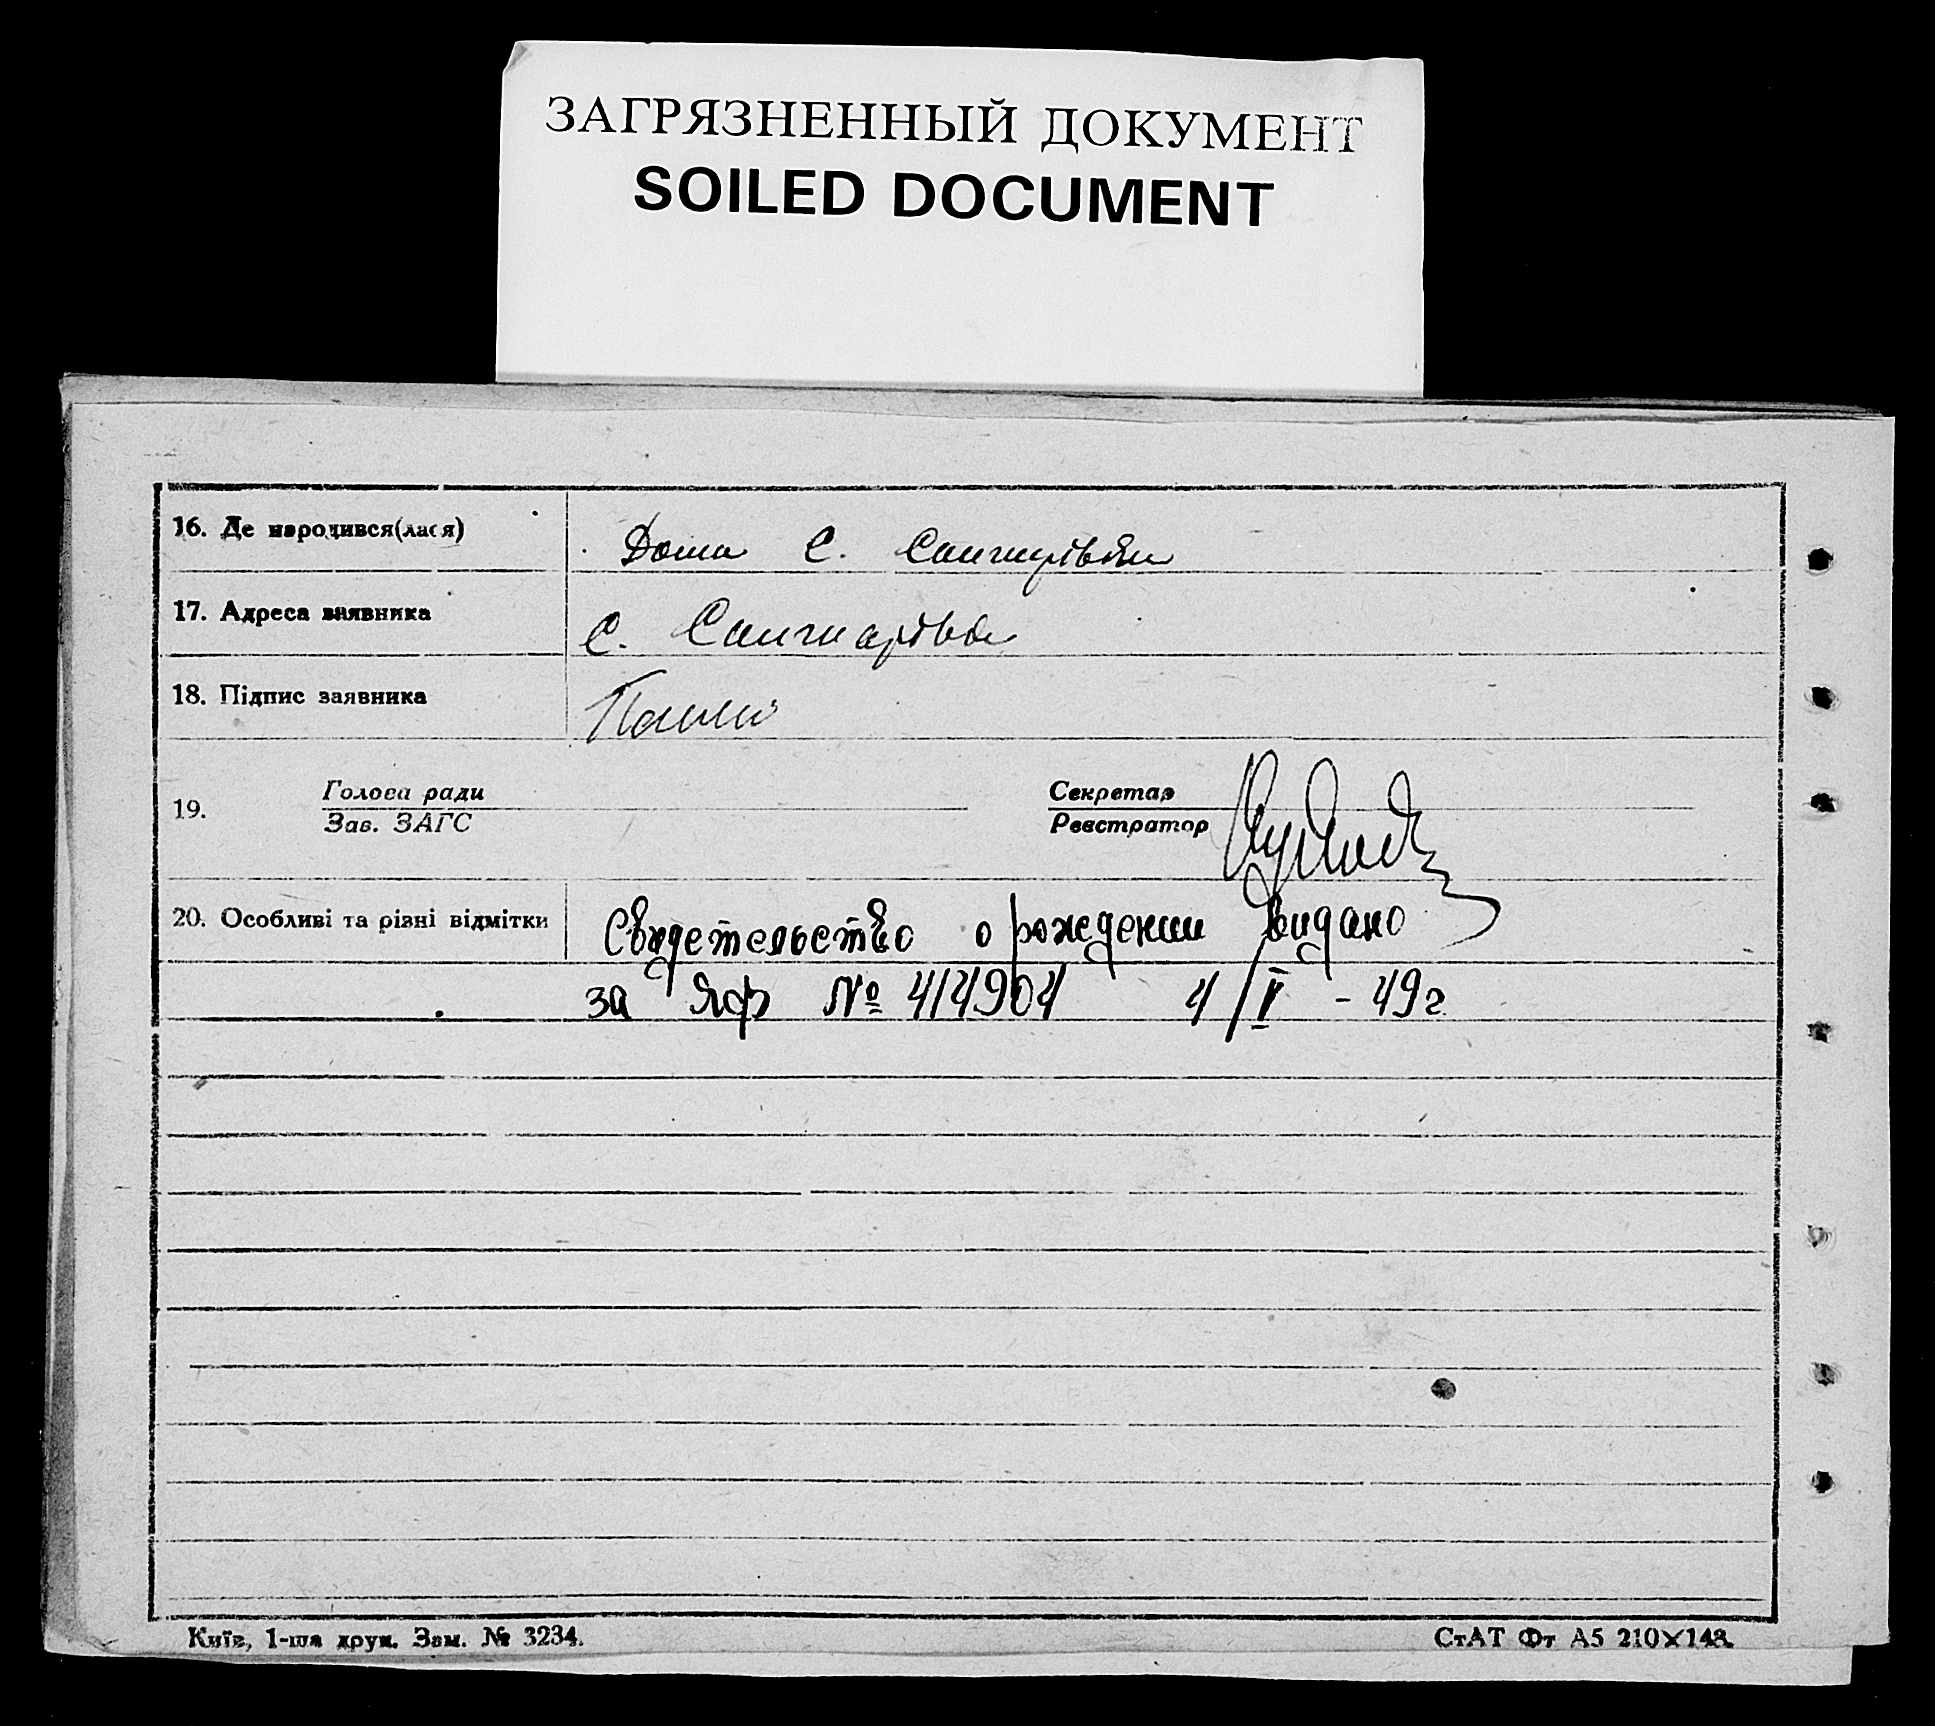 ЗАГРЯЗНЕННЫЙ ДОКУМЕНТ
SOILED DOCUMENT
16. Де народився(лася)
Дома с.
17. Адреса заявника
с.
18. Підпис заявника
19. Голова ради
Зав. ЗАГС
Секретар
Реєстратор
20. Особливі та різні відмітки
Свидетельство о рождении видано
за ЯФ № 414904 4/V - 49 г.
Київ, 1-ша друк. Зам. № 3234.
СтАТ Фт А5 210×148.